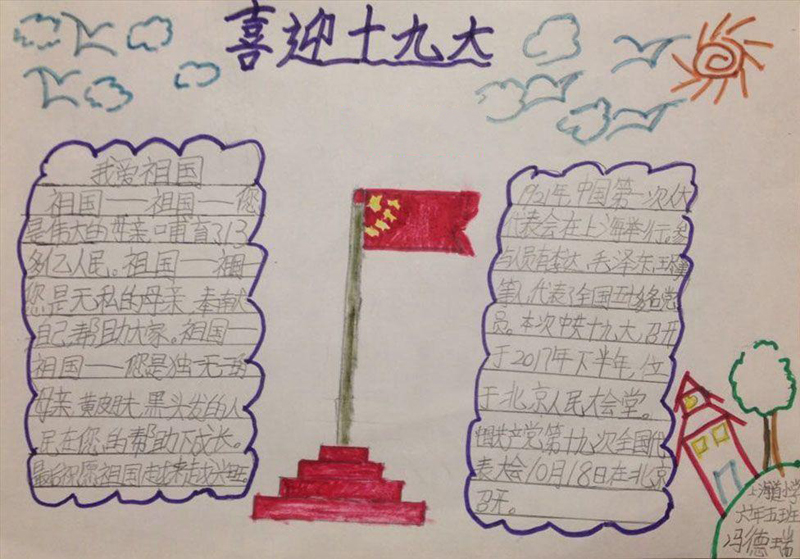 喜迎十九大
我爱祖国
祖国——祖国——您
是伟大的母亲哺育了13
多亿人民。祖国——祖国
您是无私的母亲 奉献
自己帮助大家。祖国——
祖国——您是独一无二的
母亲,黄皮肤,黑头发的人
民在您的帮助下成长。
最后祝愿祖国越来越
1921年,中国第一次
代表会在上海举行,
与人员有李达,毛泽东,王
等人代表了全国五十多名党
员。本次中共十九大,召开
于2017年下半年,位
于北京人民大会堂。
中国共产党第十九次全国代
表大会10月18日在北京
召开。
上海道小学
六年五班
冯德瑞